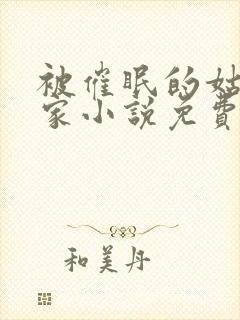 被催眠的姑
家小说免費
和美丹